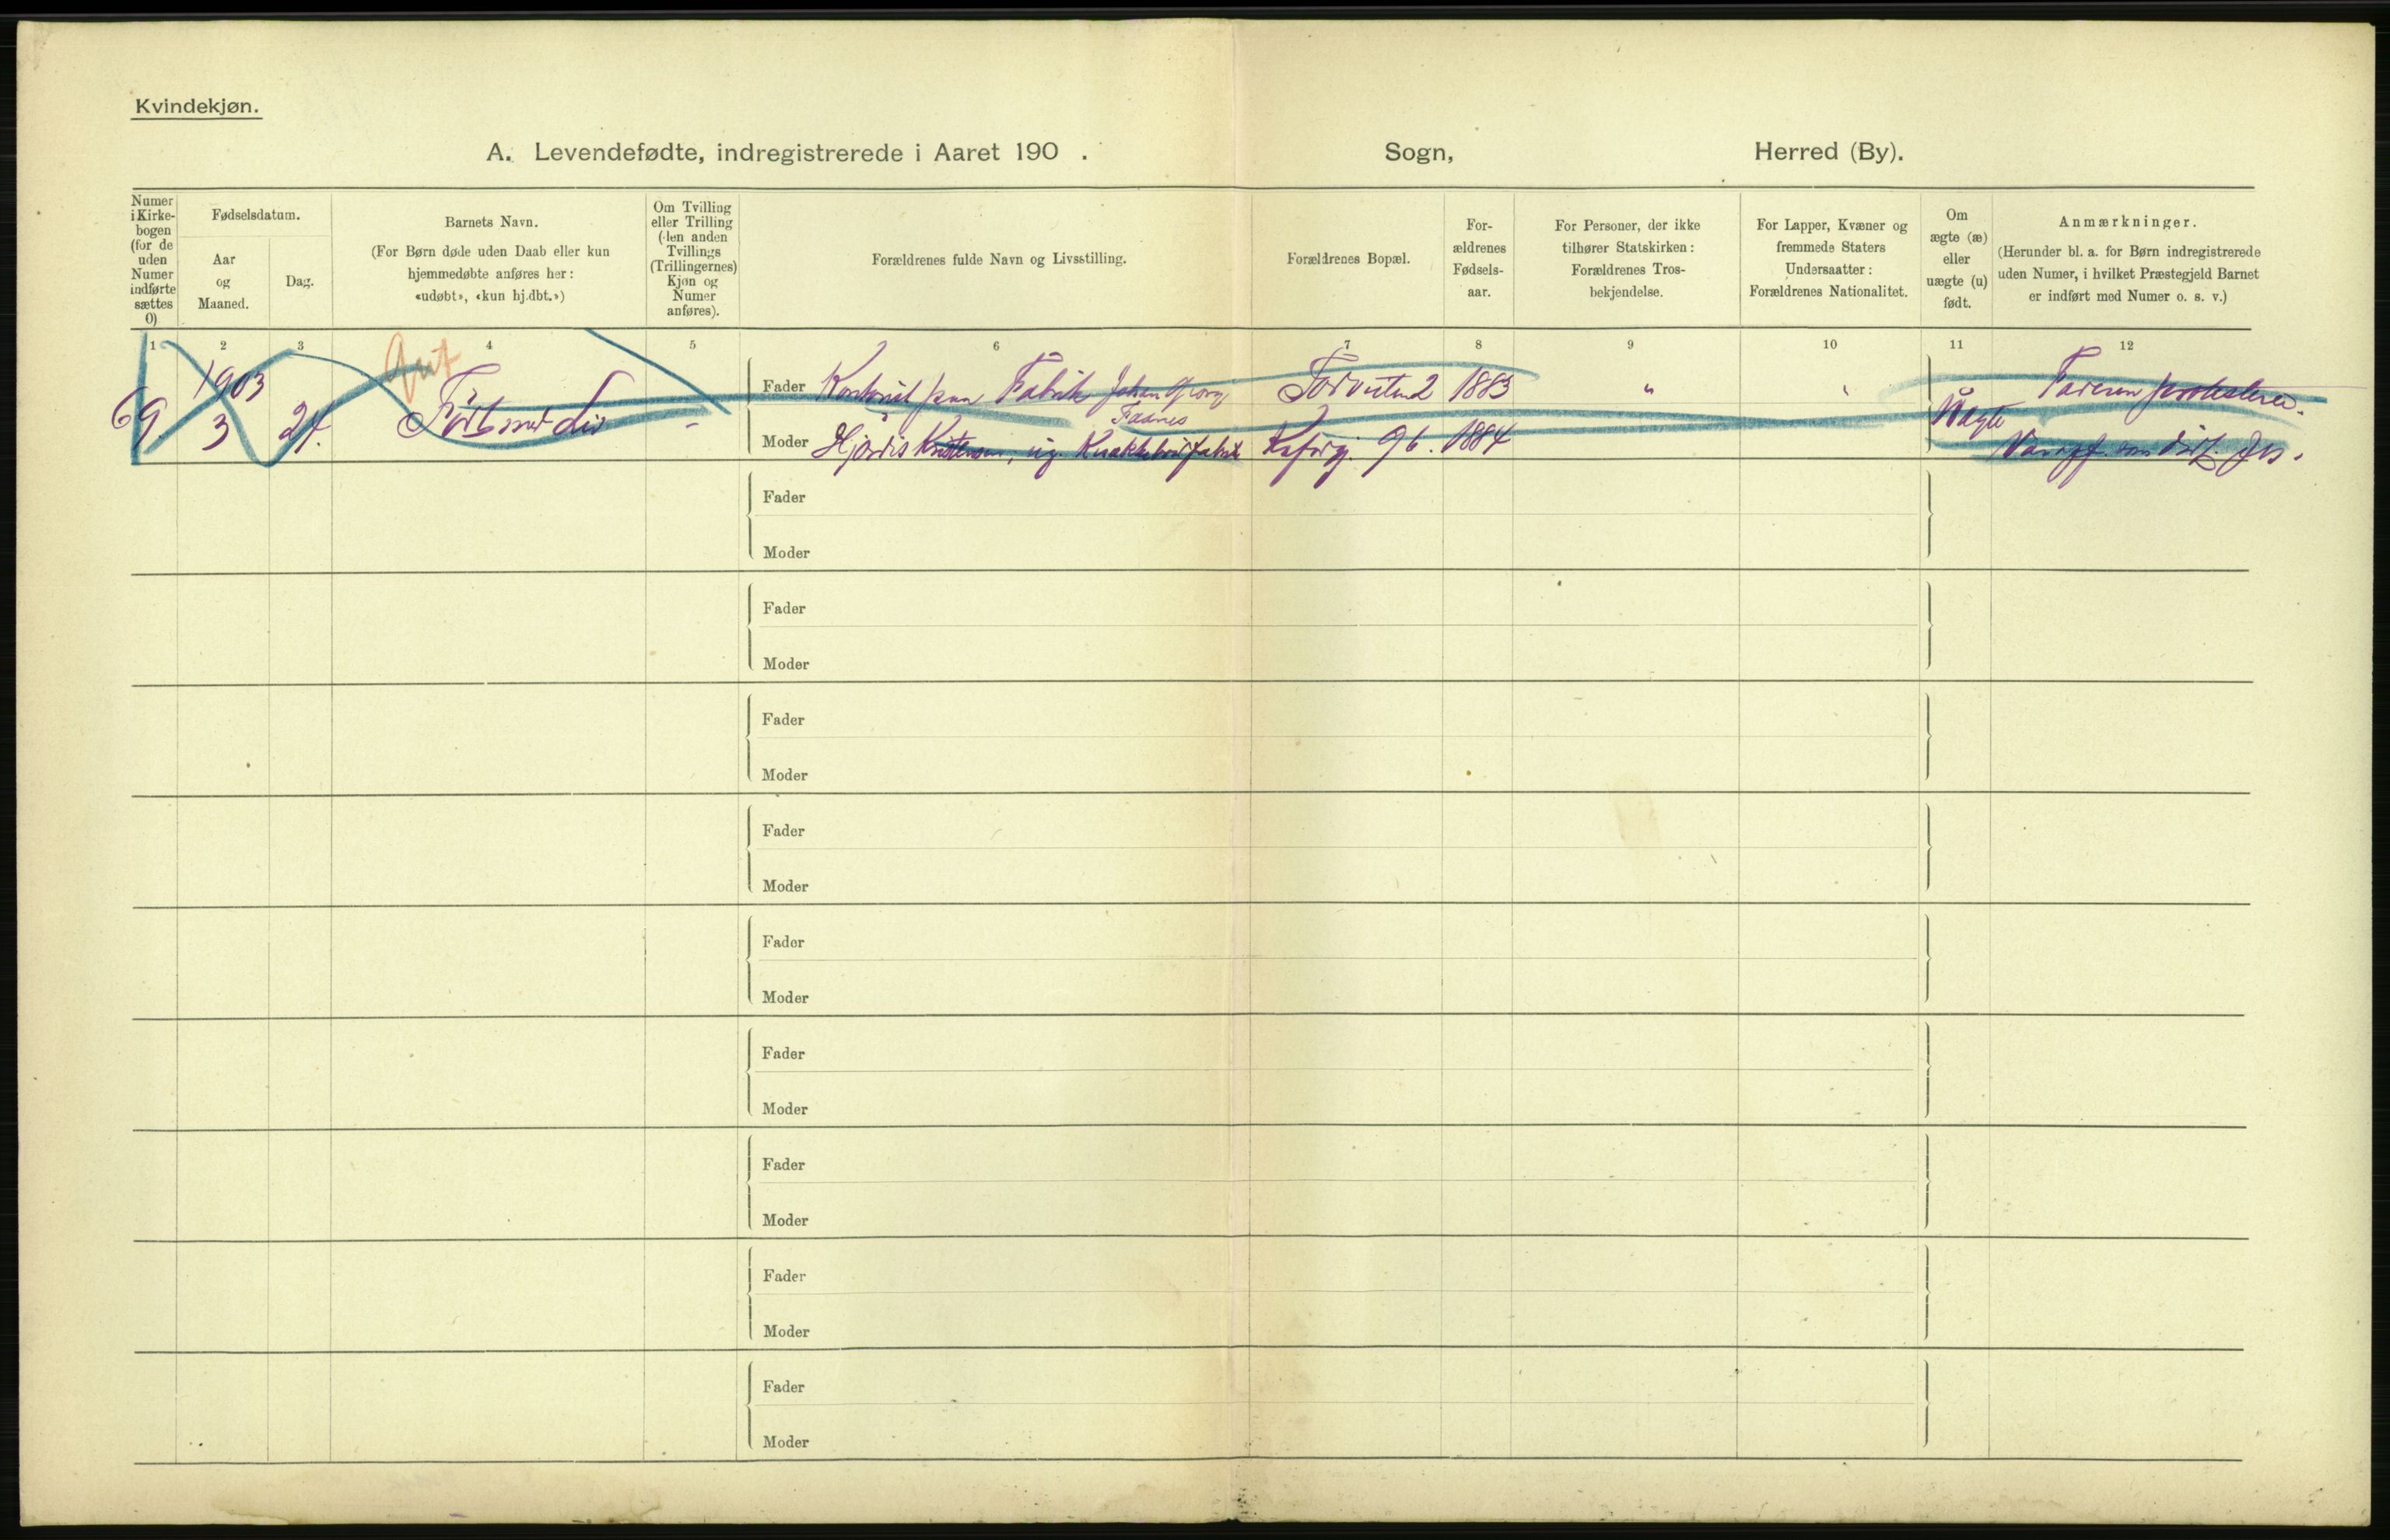 Kvindekjøn.
A. Levendefødte, indregistrerede i Aaret 190 . Sogn, Herred (By).
Numer i Kirkebogen (for de uden Numer indførte sættes 0)
Fødselsdatum.
Aar og Maaned.
Dag.
Barnets Navn.
(For Børn døde uden Daab eller kun
hjemmedøbte anføres her:
«udøbt», «kun hj.dbt.»)
Om Tvilling
eller Trilling
(den anden
Tvillings
(Trillingernes)
Kjøn og
Numer
anføres).
Forældrenes fulde Navn og Livsstilling.
Forældrenes Bopæl.
For-
ældrenes
Fødsels-
aar.
For Personer, der ikke
tilhører Statskirken:
Forældrenes Tros-
bekjendelse.
For Lapper, Kvæner og
fremmede Staters
Undersaatter:
Forældrenes Nationalitet.
Om
ægte (æ)
eller
uægte (u)
født.
Anmærkninger.
(Herunder bl. a. for Børn indregistrerede
uden Numer, i hvilket Præstegjeld Barnet
er indført med Numer o. s. v.)
1 2 3 4 5 6 7 8 9 10 11 12
69. 1903 3 24. Født med Liv -
Fader Kontorist paa Fabrik Johan Georg 1883 "
Moder Hjørdis Kristensen, ug. 96. 1884
Uægte
Faderen protesterer.
Fader
Moder
Fader
Moder
Fader
Moder
Fader
Moder
Fader
Moder
Fader
Moder
Fader
Moder
Fader
Moder
Fader
Moder